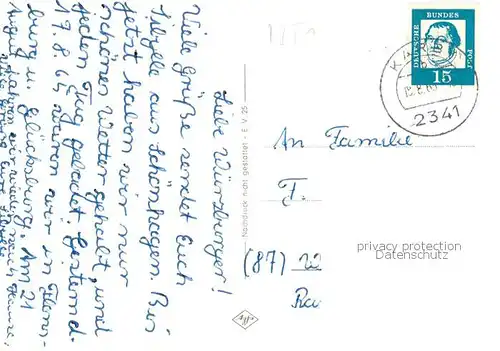 Liebe Würzburger!
Viele Grüße sendet Euch
Sibylle aus Schönhagen. Bis
jetzt haben wir nur
schönes Wetter gehabt, und
jeden Tag gebadet. Gestern d.
17.8.65 waren wir in Flens-
burg u. Glücksburg. Am 21
August fahren wir wieder nach Hause.
Nachdruck nicht gestattet - E V 25
DEUTSCHE BUNDES POST
15
2341
An Familie
F.
(87) W
Ra
privacy protection
DATENSCHUTZ